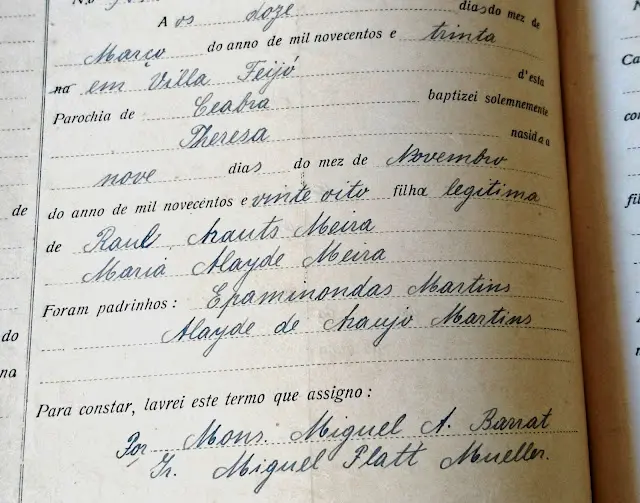 Aos doze dias do mez de
Março do anno de mil novecentos e trinta
na em Villa Feijó d'esta
Parochia de Ceabra baptizei solemnemente
Theresa nasida a
nove dias do mez de Novembro
de do anno de mil novecentos e vinte oito filha legitima
de Raul Arauts Meira
Maria Alayde Meira
Foram padrinhos: Epaminondas Martins
do Alayde de Araujo Martins
na
Para constar, lavrei este termo que assigno:
Por Mons. Miguel A. Barrat
Fr. Miguel Platt Mueller.